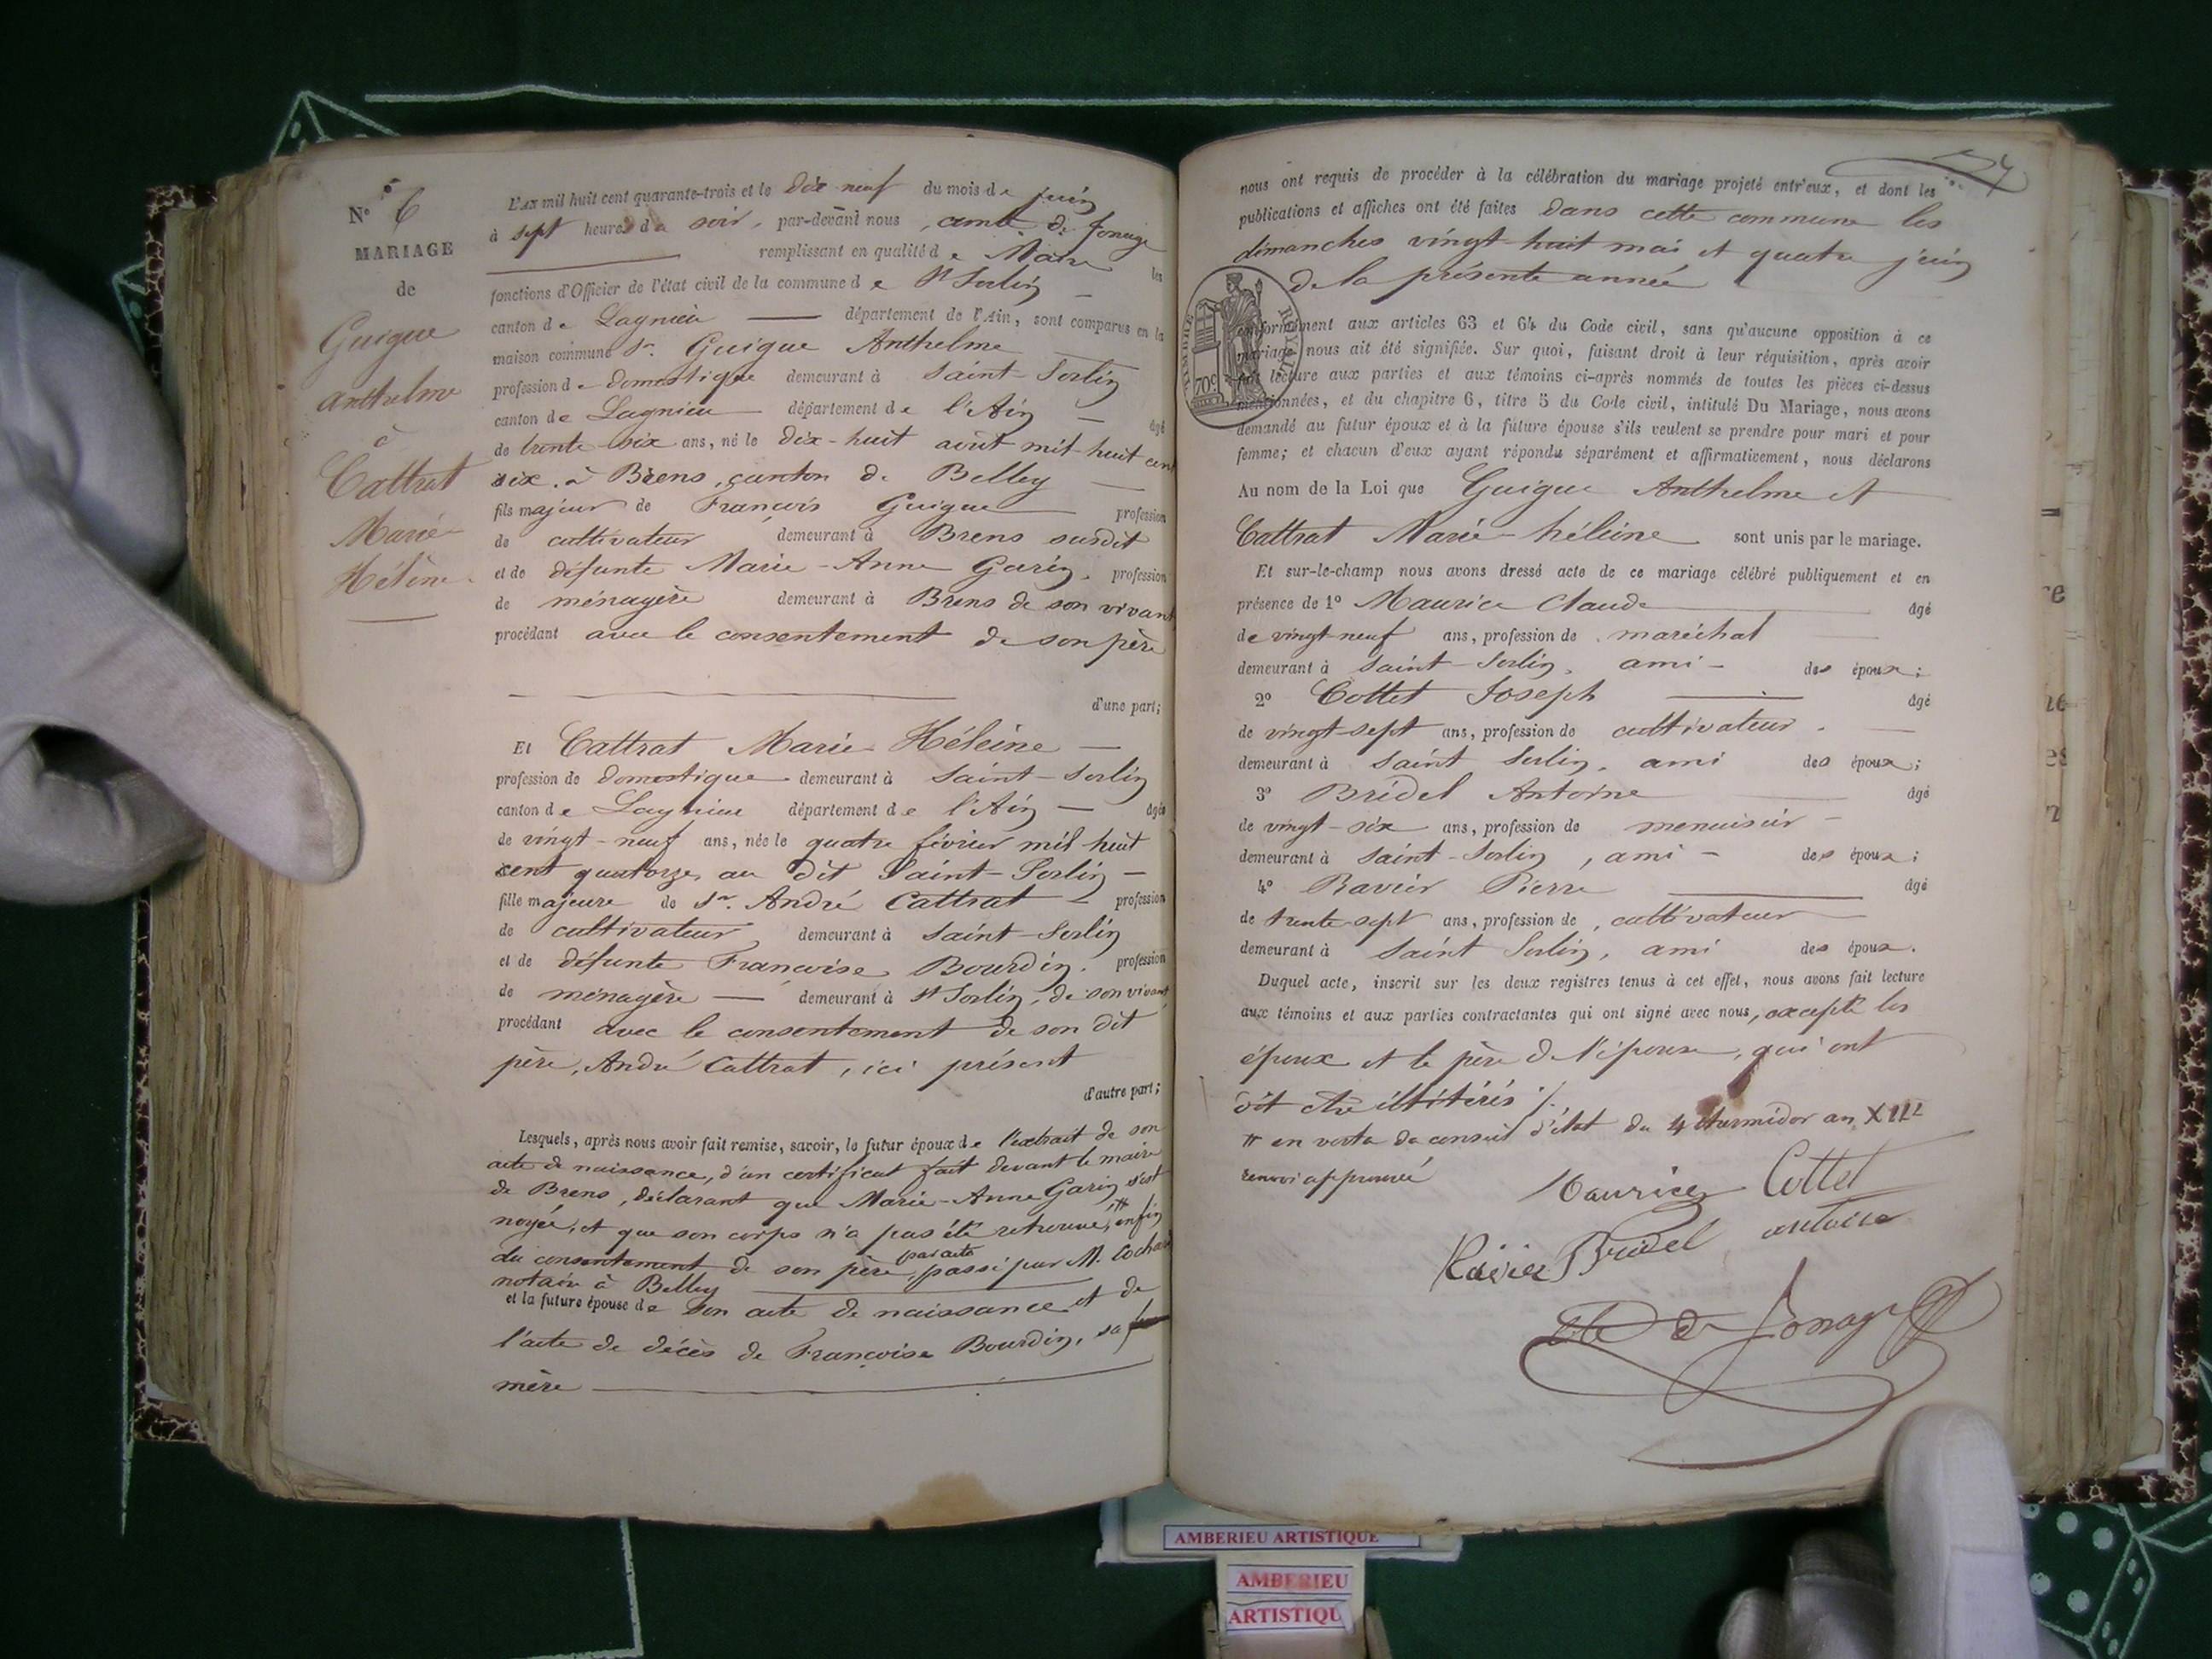 N° 6
MARIAGE
de
Guigue
Anthelme
à
Cattrat
Marie
Hélène
L'AN mil huit cent quarante-trois et le dix neuf du mois de juin
à sept heures du soir, par-devant nous, comte de
remplissant en qualité de Maire les
fonctions d'Officier de l'état civil de la commune de St Sorlin
canton de Lagnieu département de l'Ain, sont comparus en la
maison commune Sr. Guigue Anthelme
profession de domestique demeurant à Saint-Sorlin
canton de Lagnieu département de l'Ain âgé
de trente-six ans, né le dix-huit août mil huit cent
six, à Brens, canton de Belley
fils majeur de François Guigue profession
de cultivateur demeurant à Brens susdit
et de défunte Marie-Anne Garin, profession
de ménagère demeurant à Brens de son vivant
procédant avec le consentement de son père
d'une part;
Et Cattrat Marie-Héleine
profession de domestique demeurant à Saint-Sorlin
canton de Lagnieu département de l'Ain âgée
de vingt-neuf ans, née le quatre février mil huit
cent quatorze, au dit Saint-Sorlin
fille majeure de Sr. André Cattrat profession
de cultivateur demeurant à Saint-Sorlin
et de défunte Françoise Bourdin, profession
de ménagère demeurant à St Sorlin, de son vivant
procédant avec le consentement de son dit
père, André Cattrat, ici présent
d'autre part;
Lesquels, après nous avoir fait remise, savoir, le futur époux de l'extrait de son
acte de naissance, d'un certificat fait devant le maire
de Brens, déclarant que Marie-Anne Garin s'est
noyée, et que son corps n'a pas été retrouvé, # enfin
du consentement de son père, par acte passé par M. Cochard
notaire à Belley
et la future épouse de son acte de naissance et de
l'acte de décès de Françoise Bourdin, sa
mère
nous ont requis de procéder à la célébration du mariage projeté entr'eux, et dont les
publications et affiches ont été faites dans cette commune les
dimanches vingt-huit mai et quatre juin
de la présente année
TIMBRE ROYAL
70c
conformément aux articles 63 et 64 du Code civil, sans qu'aucune opposition à ce
mariage nous ait été signifiée. Sur quoi, faisant droit à leur réquisition, après avoir
fait lecture aux parties et aux témoins ci-après nommés de toutes les pièces ci-dessus
mentionnées, et du chapitre 6, titre 5 du Code civil, intitulé Du Mariage, nous avons
demandé au futur époux et à la future épouse s'ils veulent se prendre pour mari et pour
femme; et chacun d'eux ayant répondu séparément et affirmativement, nous déclarons
Au nom de la Loi que Guigue Anthelme et
Cattrat Marie-héleine sont unis par le mariage.
Et sur-le-champ nous avons dressé acte de ce mariage célébré publiquement et en
présence de 1° Maurice Claude âgé
de vingt-neuf ans, profession de maréchal
demeurant à Saint-Sorlin, ami des époux;
2° Cottet Joseph âgé
de vingt-sept ans, profession de cultivateur
demeurant à Saint Sorlin, ami des époux;
3° Bridel Antoine âgé
de vingt-six ans, profession de menuisier
demeurant à Saint-Sorlin, ami des époux;
4° Ravier Pierre âgé
de trente-sept ans, profession de, cultivateur
demeurant à Saint Sorlin, ami des époux.
Duquel acte, inscrit sur les deux registres tenus à cet effet, nous avons fait lecture
aux témoins et aux parties contractantes qui ont signé avec nous, excepté les
époux et le père de l'épouse, qui ont
dit être illitérés ./.
# en vertu du conseil d'état du 4 thermidor an XIII
renvoi approuvé
Maurice Cottet
Ravier Bridel antoine
AMBERIEU ARTISTIQUE
AMBERIEU
ARTISTIQU